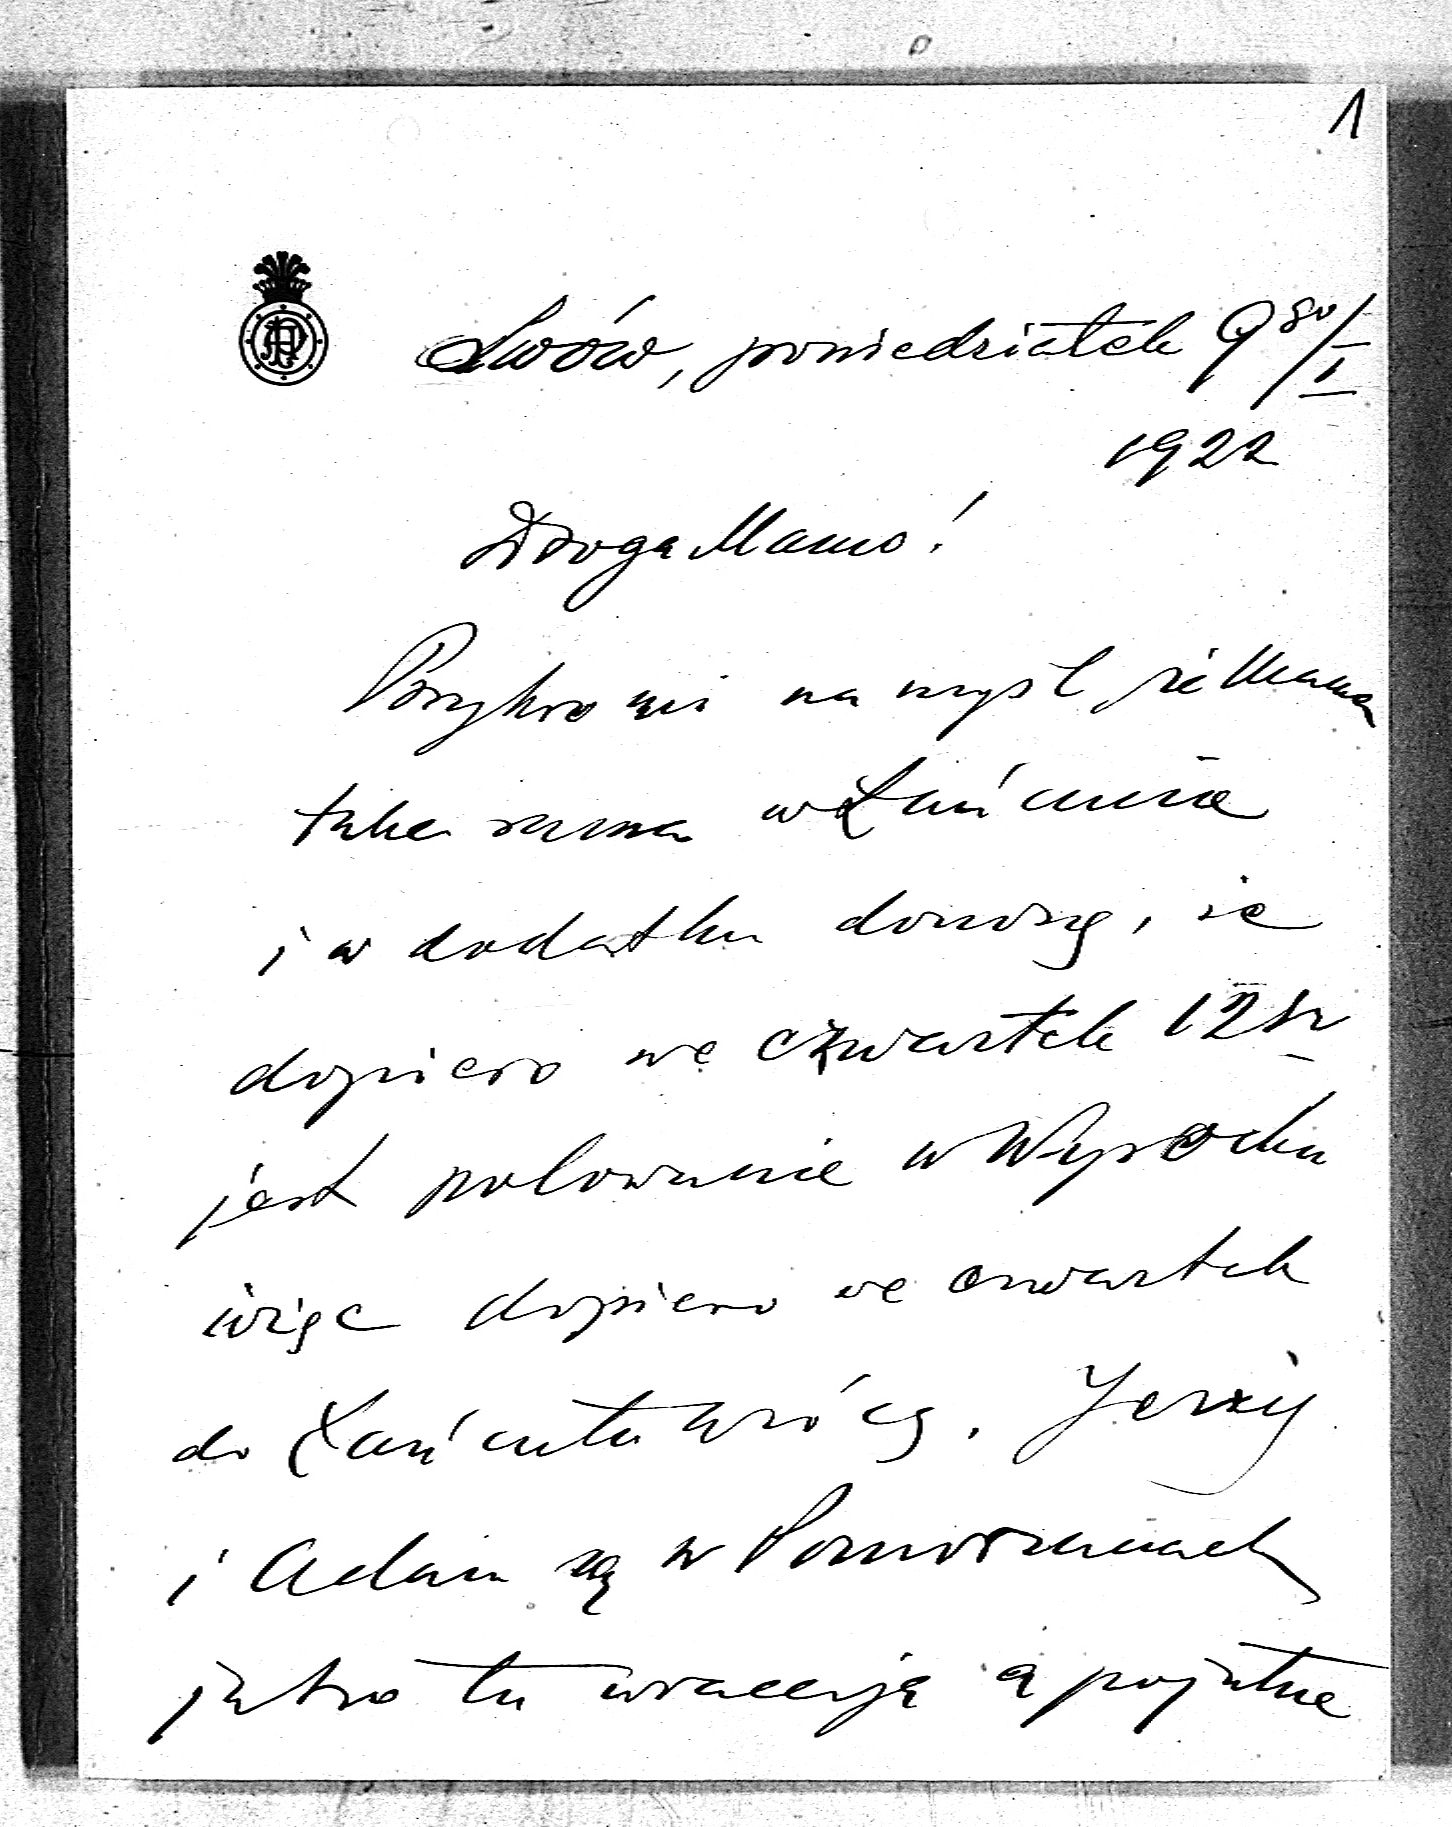 1
Lwów, poniedziałek 9go/I
1922
Droga Mamo!
Przykro mi na myśl że Mama
taka sama w Łańcucie
i w dodatku donoszę, że
dopiero we czwartek 12
jest polowanie w Wysocku
więc dopiero we czwartek
do Łańcuta wrócę. Jerzy
i Adam są w Pomorzanach
jutro tu wracają a pojutrze